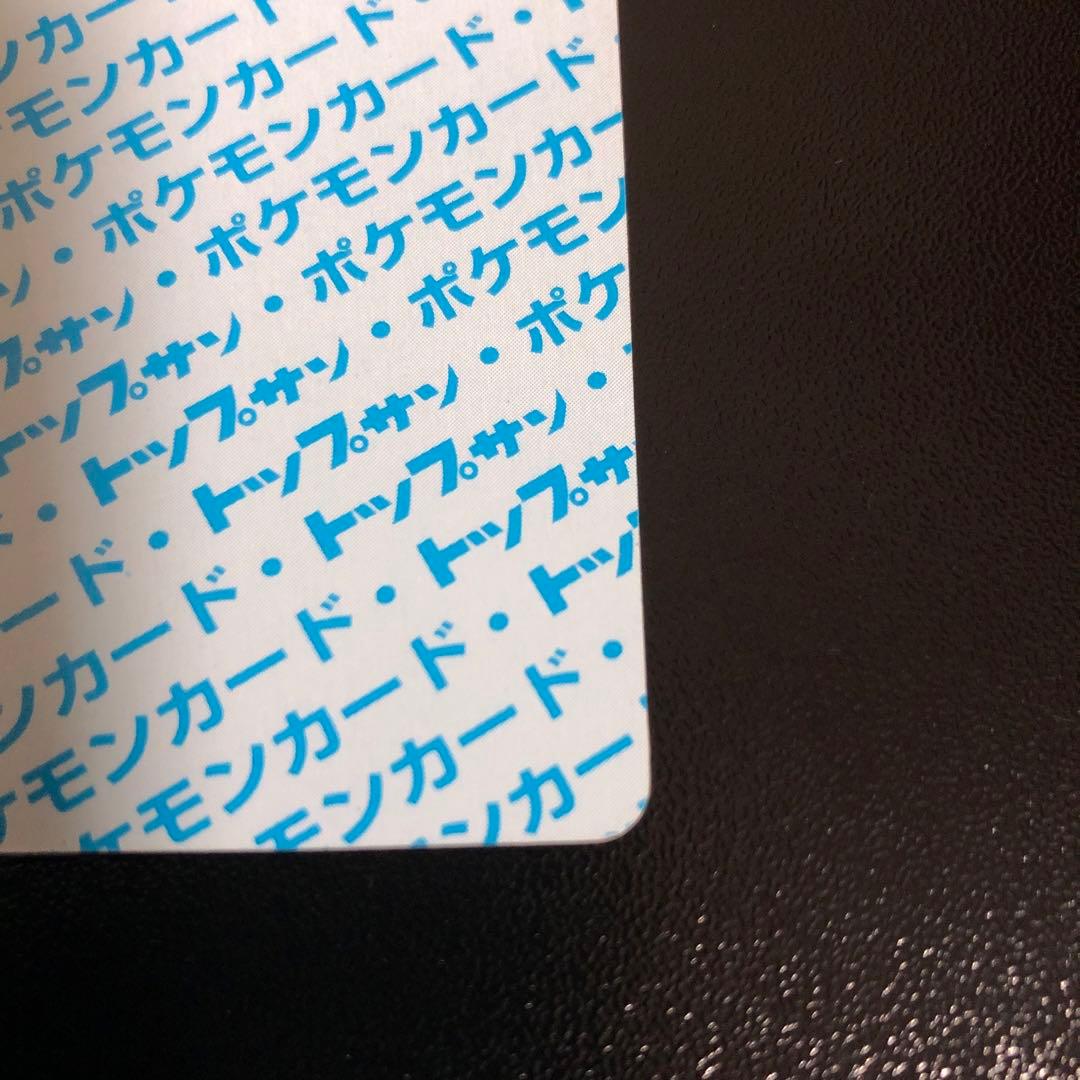 ンカー
モンカード
ポケモンカード・
ン・ポケモンカード・
プサン・ポケモンカード
トップサン・ポケモンカー
・トップサン・ポケモン
ード・トップサン・ポケ
ンカード・トップサン・
ケモンカード・トップサ
ケモンカード・トッ
モンカード・
ンカー